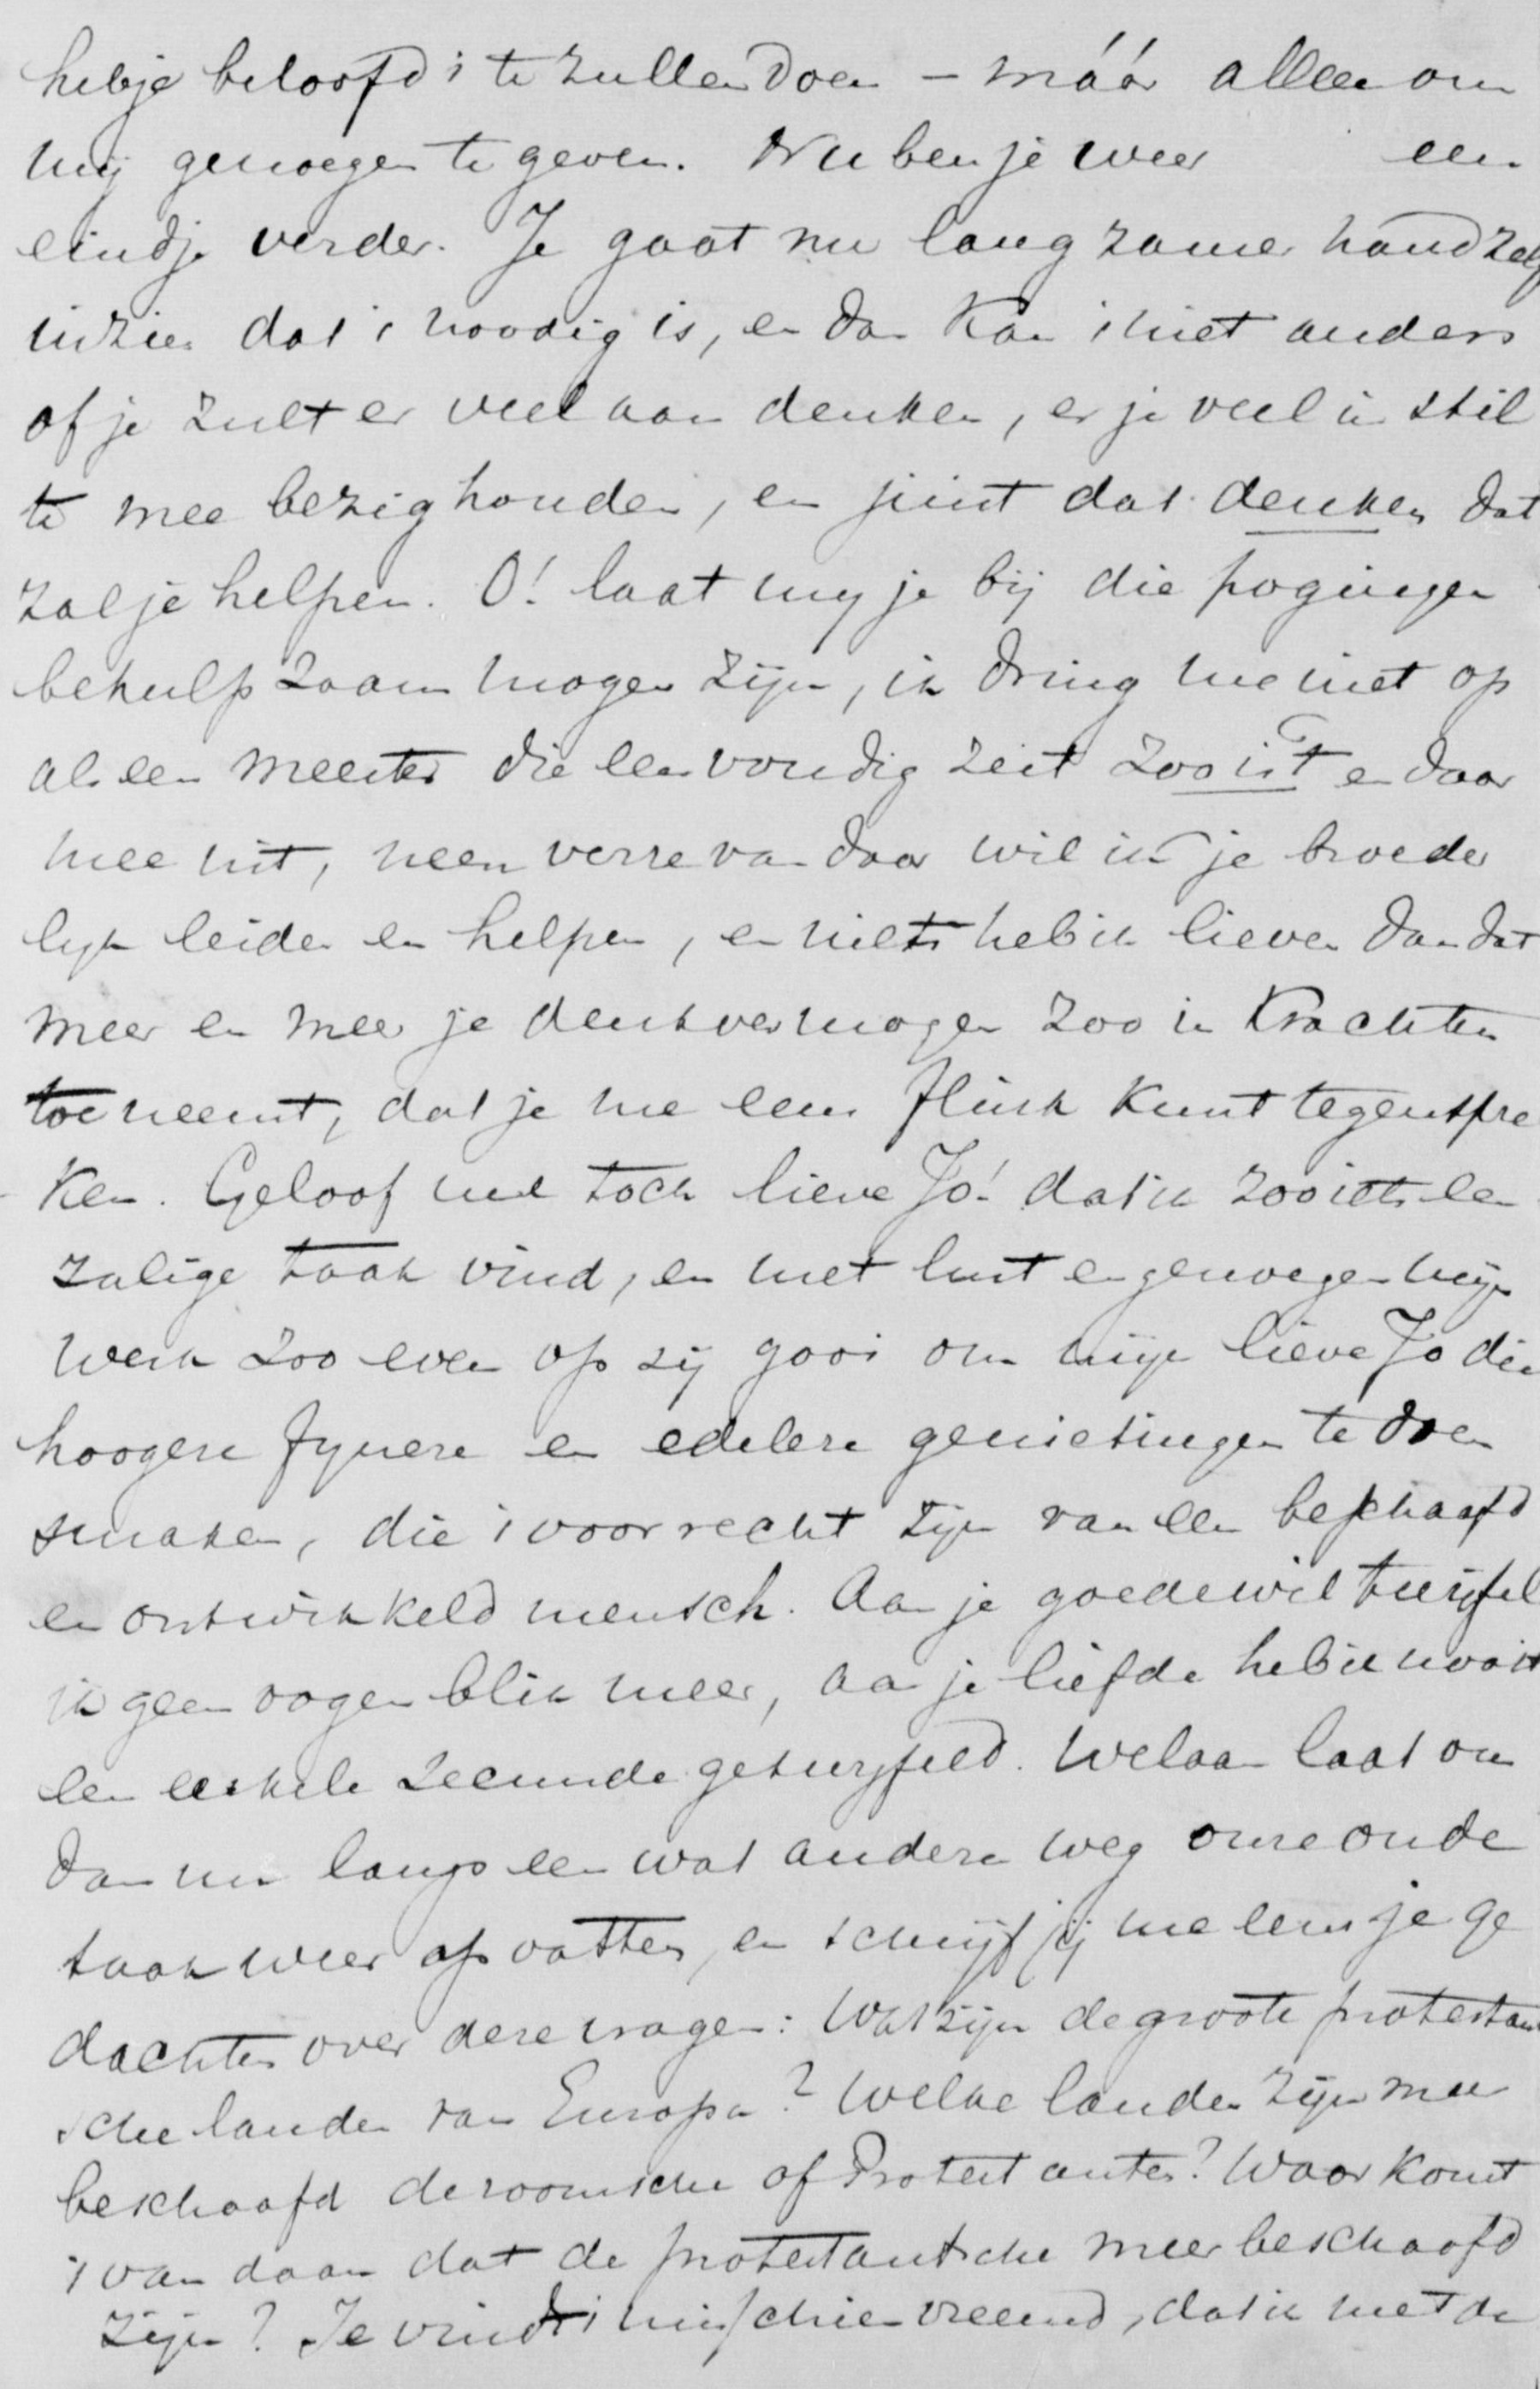 heb je beloofd 't te zullen doen – máár alleen om
mij genoegen te geven. Nu ben je weer een
eindje verder. Je gaat nu langzamerhand zelf
inzien dat 't noodig is, en dan kan 't niet anders
of je zult er veel aan denken, en je veel in stil
te mee bezighouden, en juist dat denken dat
zal je helpen. O! laat my je bij die pogingen
behulpzaam mogen zijn, ik dring me niet op
als een meester die eenvoudig zeit zoo is't en daar
mee uit, neen verre van daar wil ik je broeder
lyk leiden en helpen, en niets heb ik liever dan dat
meer en meer je denkvermogen zoo in krachten
toeneemt, dat je me eens flink kunt tegenspre
ken. Geloof me toch lieve Jo! dat ik zooiets een
zalige taak vind, en met lust en genoegen mijn
werk zoo even op zij gooi om mijn lieve Jo die
hoogere fynere en edelere genietingen te doen
smaken, die 't voorrecht zijn van een beschaafd
en ontwikkeld mensch. Aan je goede wil twijfel
ik geen oogenblik meer, aan je liefde heb ik nooit
een enkele secunde getwijfeld. Welaan laat ons
dan nu langs een wat andere weg onze oude
taak weer opvatten, en schrijf jij me eens je ge
dachten over deze vragen: Wat zijn de groote protestant
sche landen van Europa? Welke landen zijn meer
beschaafd de roomsche of Protestanten? Waar komt
't van daan dat de protestantsche meer beschaafd
zijn? Je vindt 't misschien vreemd, dat ik met de